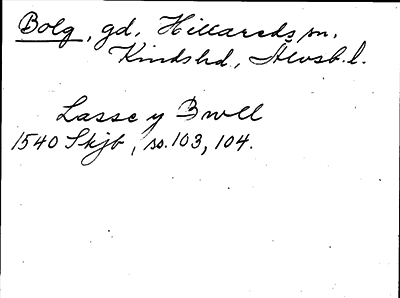 Bolg, gd, Hillareds sn.
Kindshd., Älvsb. l.
Lasse y Bwll
1540 Skjb, ss. 103, 104.